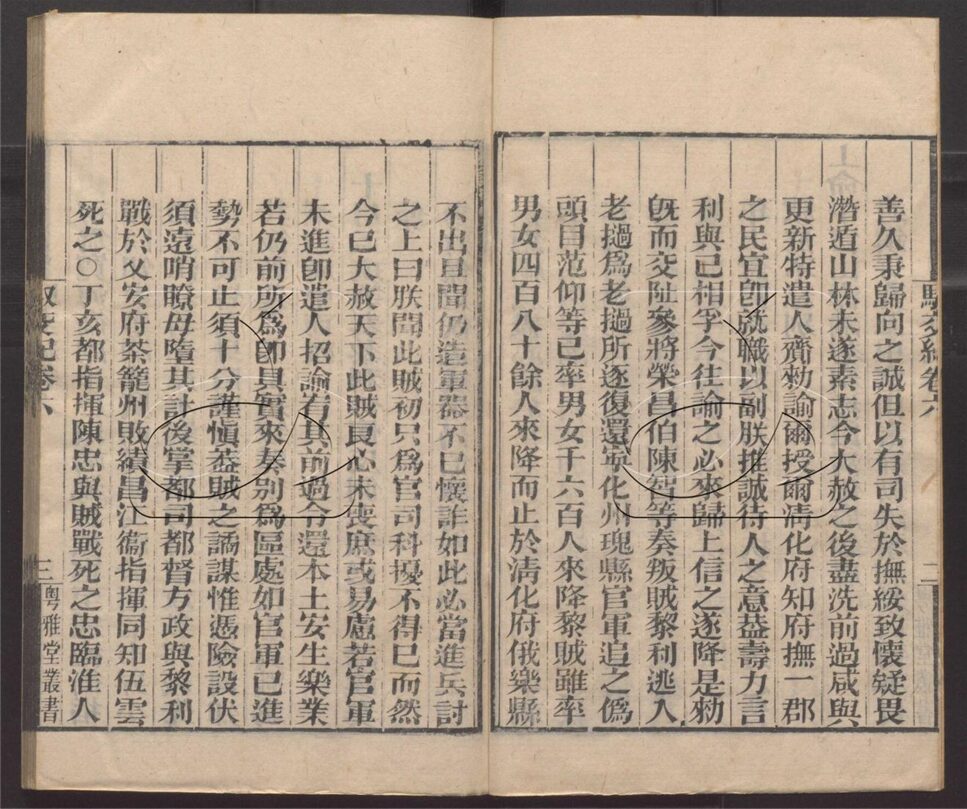 馭交紀卷六
二
善久秉歸向之誠但以有司失於撫綏致懷疑畏
潛遁山林未遂素志今大赦之後盡洗前過咸與
更新特遣人齎勑諭爾授爾淸化府知府撫一郡
之民宜卽就職以副朕推誠待人之意葢壽力言
利與已相孚今往諭之必來歸上信之遂降是勑
旣而交阯參將榮昌伯陳智等奏叛賊黎利逃入
老撾爲老撾所逐復還寧化州瑰縣官軍追之僞
頭目范仰等已率男女千六百人來降黎賊雖率
男女四百八十餘人來降而止於淸化府俄樂縣
不出且聞仍造軍器不已懷詐如此必當進兵討
之上曰朕聞此賊初只爲官司科擾不得已而然
今已大赦天下此賊良心未喪庶或易慮若官軍
未進卽遣人招諭宥其前過令還本土安生樂業
若仍前所爲卽具實來奏别爲區處如官軍已進
勢不可止須十分謹愼葢賊之譎謀惟憑險設伏
須遠哨瞭毋墮其計後掌都司都督方政與黎利
戰於乂安府茶籠州敗績昌江衞指揮同知伍雲
死之○丁亥都指揮陳忠與賊戰死之忠臨淮人
馭交紀卷六
三
粵雅堂叢書